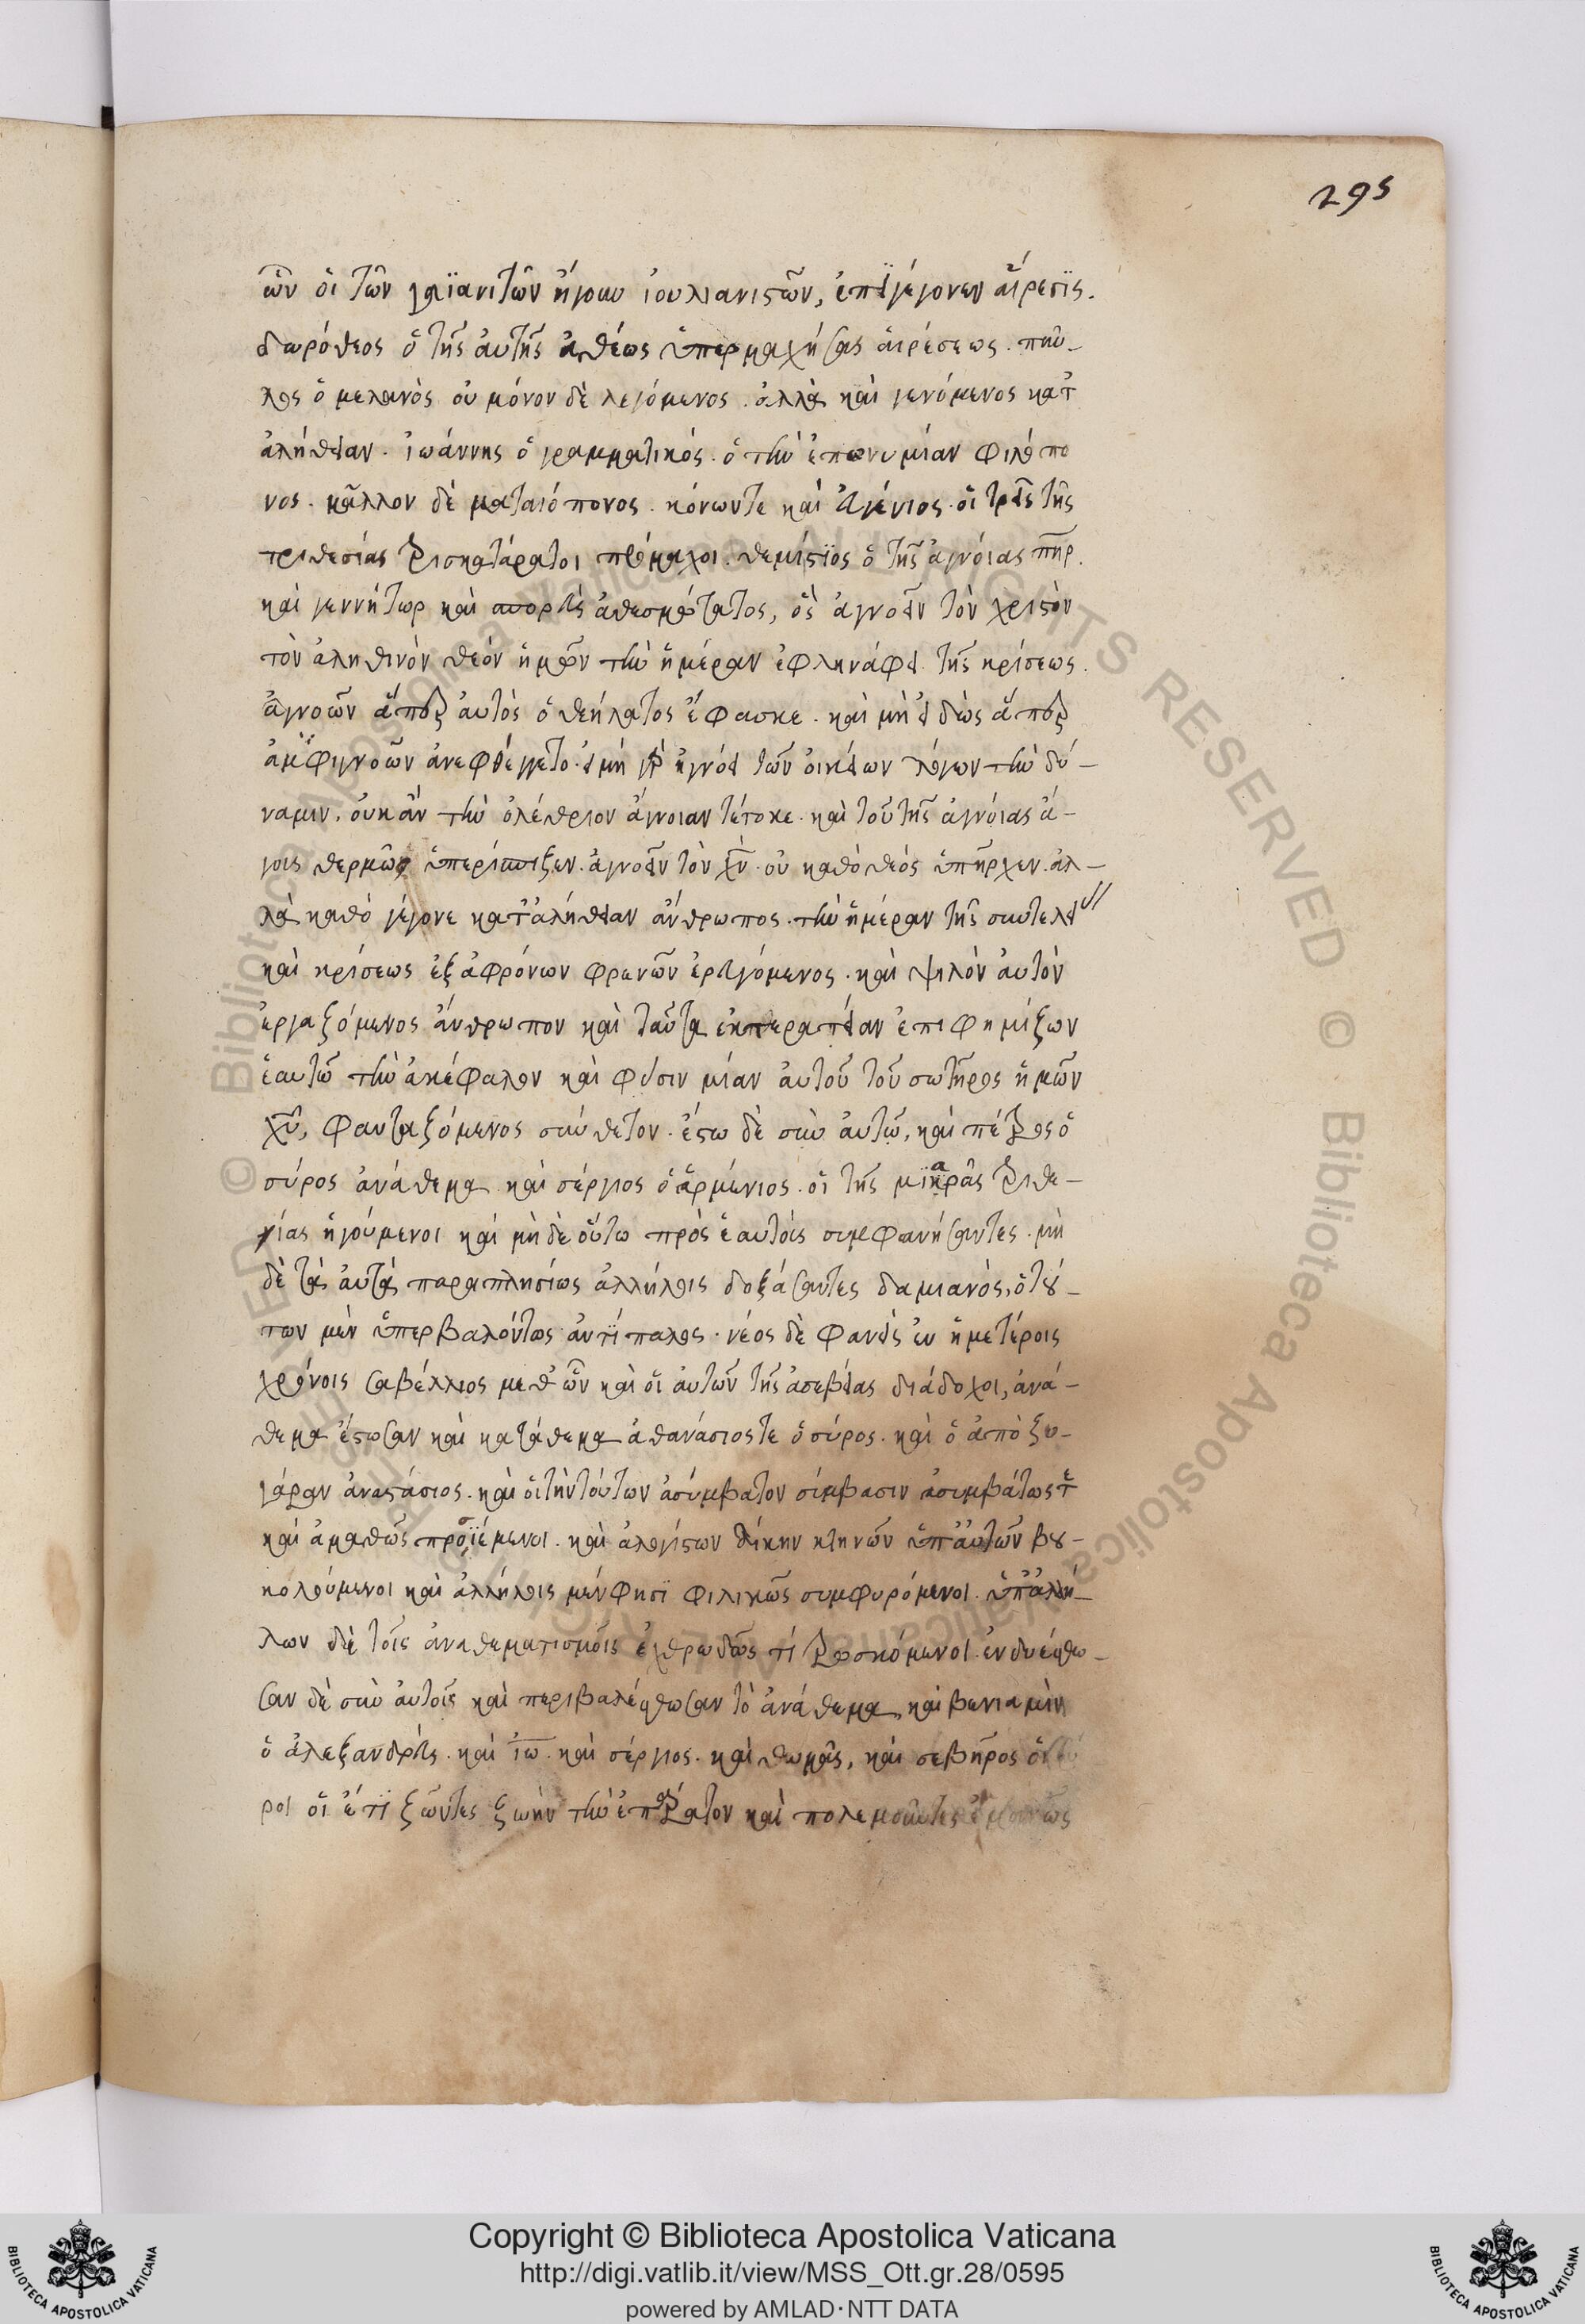 295
ὧν οἱ τῶν γαϊανιτῶν ἤγουν ἰουλιανιστῶν, ἐπιγέγονεν αἵρεσϊς.
δωρόθεος ὁ τῆς αὐτῆς ἀθέως ὑπερμαχήσας αἱρέσεως. παῦ-
λος ὁ μελανὸς οὐ μόνον δὲ λεγόμενος. ἀλλὰ καὶ γενόμενος κατ
ἀλήθειαν. ἰωάννης ὁ γραμματικός. ὁ τὴν ἐπωνυμίαν φιλόπο
νος. μᾶλλον δὲ ματαιόπονος. κόνωντε καὶ ἐυγένιος. οἱ τρεῖς τῆς
τριθεσίας τρισκατάρατοι πρόμαχοι. θεμίστϊος ὁ τῆς ἀγνόιας πηρ.
καὶ γεννήτωρ καὶ σπορεὺς ἀθεσμώτατος, ὃς ἀγνοεῖν τὸν χριστὸν
τὸν ἀληθινὸν θεόν ἡμῶν τὴν ἡμέραν ἐφληνάφει τῆς κρίσεως.
ἀγνοῶν ἅπερ αὐτὸς ὁ θεήλατος ἔφασκε. καὶ μὴ εἰδὼς ἅπερ
ἀμφιγνοῶν ἀνεφθέγγετο. εἰ μὴ γὰρ ἠγνόει τῶν οἰκείων λόγων τὴν δύ-
ναμιν. οὐκ ἂν τὴν ὀλέθριον ἄγνοιαν τέτοκε. καὶ τοῦ τῆς ἀγνοίας ἄ-
γοις θερμῶς ὑπερήσπιζεν. ἀγνοεῖν τὸν χν. οὐ καθὸ θεός ὑπῆρχεν. ἀλ-
λὰ καθὸ γέγονε κατ ἀλήθειαν ἄνθρωπος. τὴν ἡμέραν τῆς συντελεί
καὶ κρίσεως ἐξ ἀφρόνων φρενῶν ἐρευγόμενος. καὶ ψιλὸν αὐτὸν
ἐργαζόμενος ἄνθρωπον καὶ ταῦτα ἐκπερατείαν ἐπιφημίζων
ἑαυτῶ τὴν ἀκέφαλον καὶ φύσιν μίαν αὐτοῦ τοῦ σωτῆρος ἡμῶν
χυ, φανταζόμενος σύνθετον. ἔστω δὲ σὺν αὐτῶ, καὶ πέτρος ὁ
σύρος ἀνάθεμα καὶ σέργιος ὁ ἀρμένιος. οἱ τῆς μϊαρᾶς τριθε-
ΐας ἡγούμενοι καὶ μὴ δὲ οὕτω πρὸς ἑαυτοὺς συμφωνήσαντες. μὴ
δὲ τὰ αὐτὰ παραπλησίως ἀλλήλοις δοξάσαντες δαμιανὸς, ὁ τού-
των μὲν ὑπερβαλόντως ἀντίπαλος. νέος δὲ φανεὶς ἐν ἡμετέροις
χρόνοις σαβέλλιος μεθ ὧν καὶ οἱ αὐτῶν τῆς ἀσεβείας διάδοχοι, ἀνά-
θεμα ἔστωσαν καὶ κατάθεμα ἀθανάσιοστε ὁ σύρος. καὶ ὁ ἀπὸ ζυ-
γάραν ἀναστάσιος. καὶ οἱ τὴν τούτων ἀσύμβατον σύμβασιν ἀσυμβάτως τε
καὶ ἀμαθῶς προσϊέμενοι. καὶ ἀλογίστων δίκην κτηνῶν ὑπ αὐτῶν βου-
κολούμενοι καὶ ἀλλήλοις μὲν φησὶ φιλικῶς συμφυρόμενοι. ὑπ ἀλλή-
λων δὲ τοῖς ἀναθεματισμοῖς ἐχθρωδῶς τιτρωσκόμενοι. ἐνδυέσθω-
σαν δὲ σὺν αὐτοῖς καὶ περιβαλέσθωσαν τὸ ἀνάθεμα, καὶ βενιαμὶν
ὁ ἀλεξανδρεὺς. καὶ ἰω. καὶ σέργιος. καὶ θωμᾶς, καὶ σεβῆρος οἱ σύ
ροι οἱ ἔτι ζῶντες ζωὴν τὴν ἐπάρατον καὶ πολεμοῦντες ἐμμανῶς
© Biblioteca Apostolica Vaticana ALL RIGHTS RESERVED
Copyright © Biblioteca Apostolica Vaticana
http://digi.vatlib.it/view/MSS_Ott.gr.28/0595
powered by AMLAD·NTT DATA
BIBLIOTECA APOSTOLICA VATICANA
BIBLIOTECA APOSTOLICA VATICANA